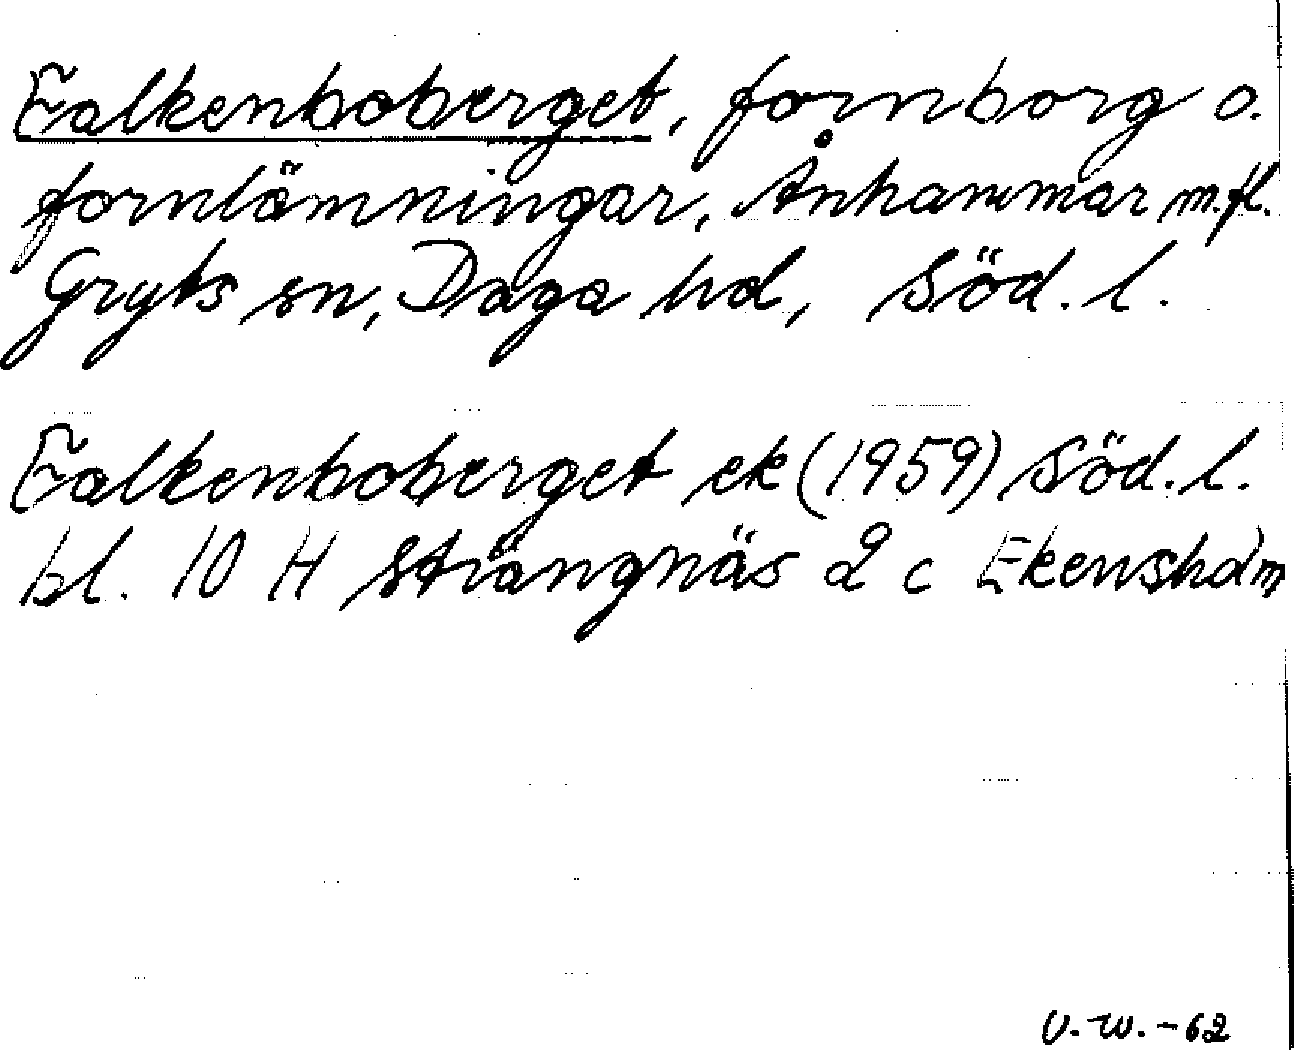 Falkenboberget, fornborg o.
fornlämningar, Ånhammar m.fl.
Gryts sn, Daga hd, Söd. l.
Falkenboberget ek (1959) Söd. l.
bl. 10 H Strängnäs 2 c Ekensholm
U. W. - 62